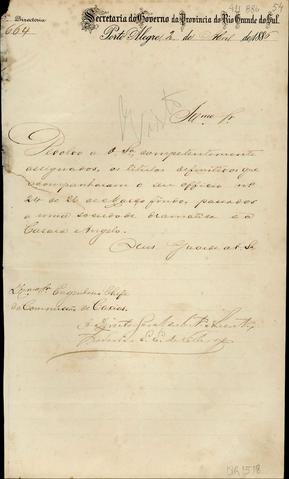 4H 886 54
Directoria
664
Secretaria do Governo da Provincia do Rio Grande do Sul.
Porto Alegre, 2 de Abril de 1886
Visto
Illmo Sr.
Devolvo a V. Sa, competentemente
assignados, os titulos definitivos que
acompanharam o seu officio nº
24 de 26 de Março findo, passados
a uma sociedade dramatica e a
Casara Angelo.
Deus Guarde a V. Sa
Engenheiro Chefe
da Commissão de Caxias.
O Director Geral
1518